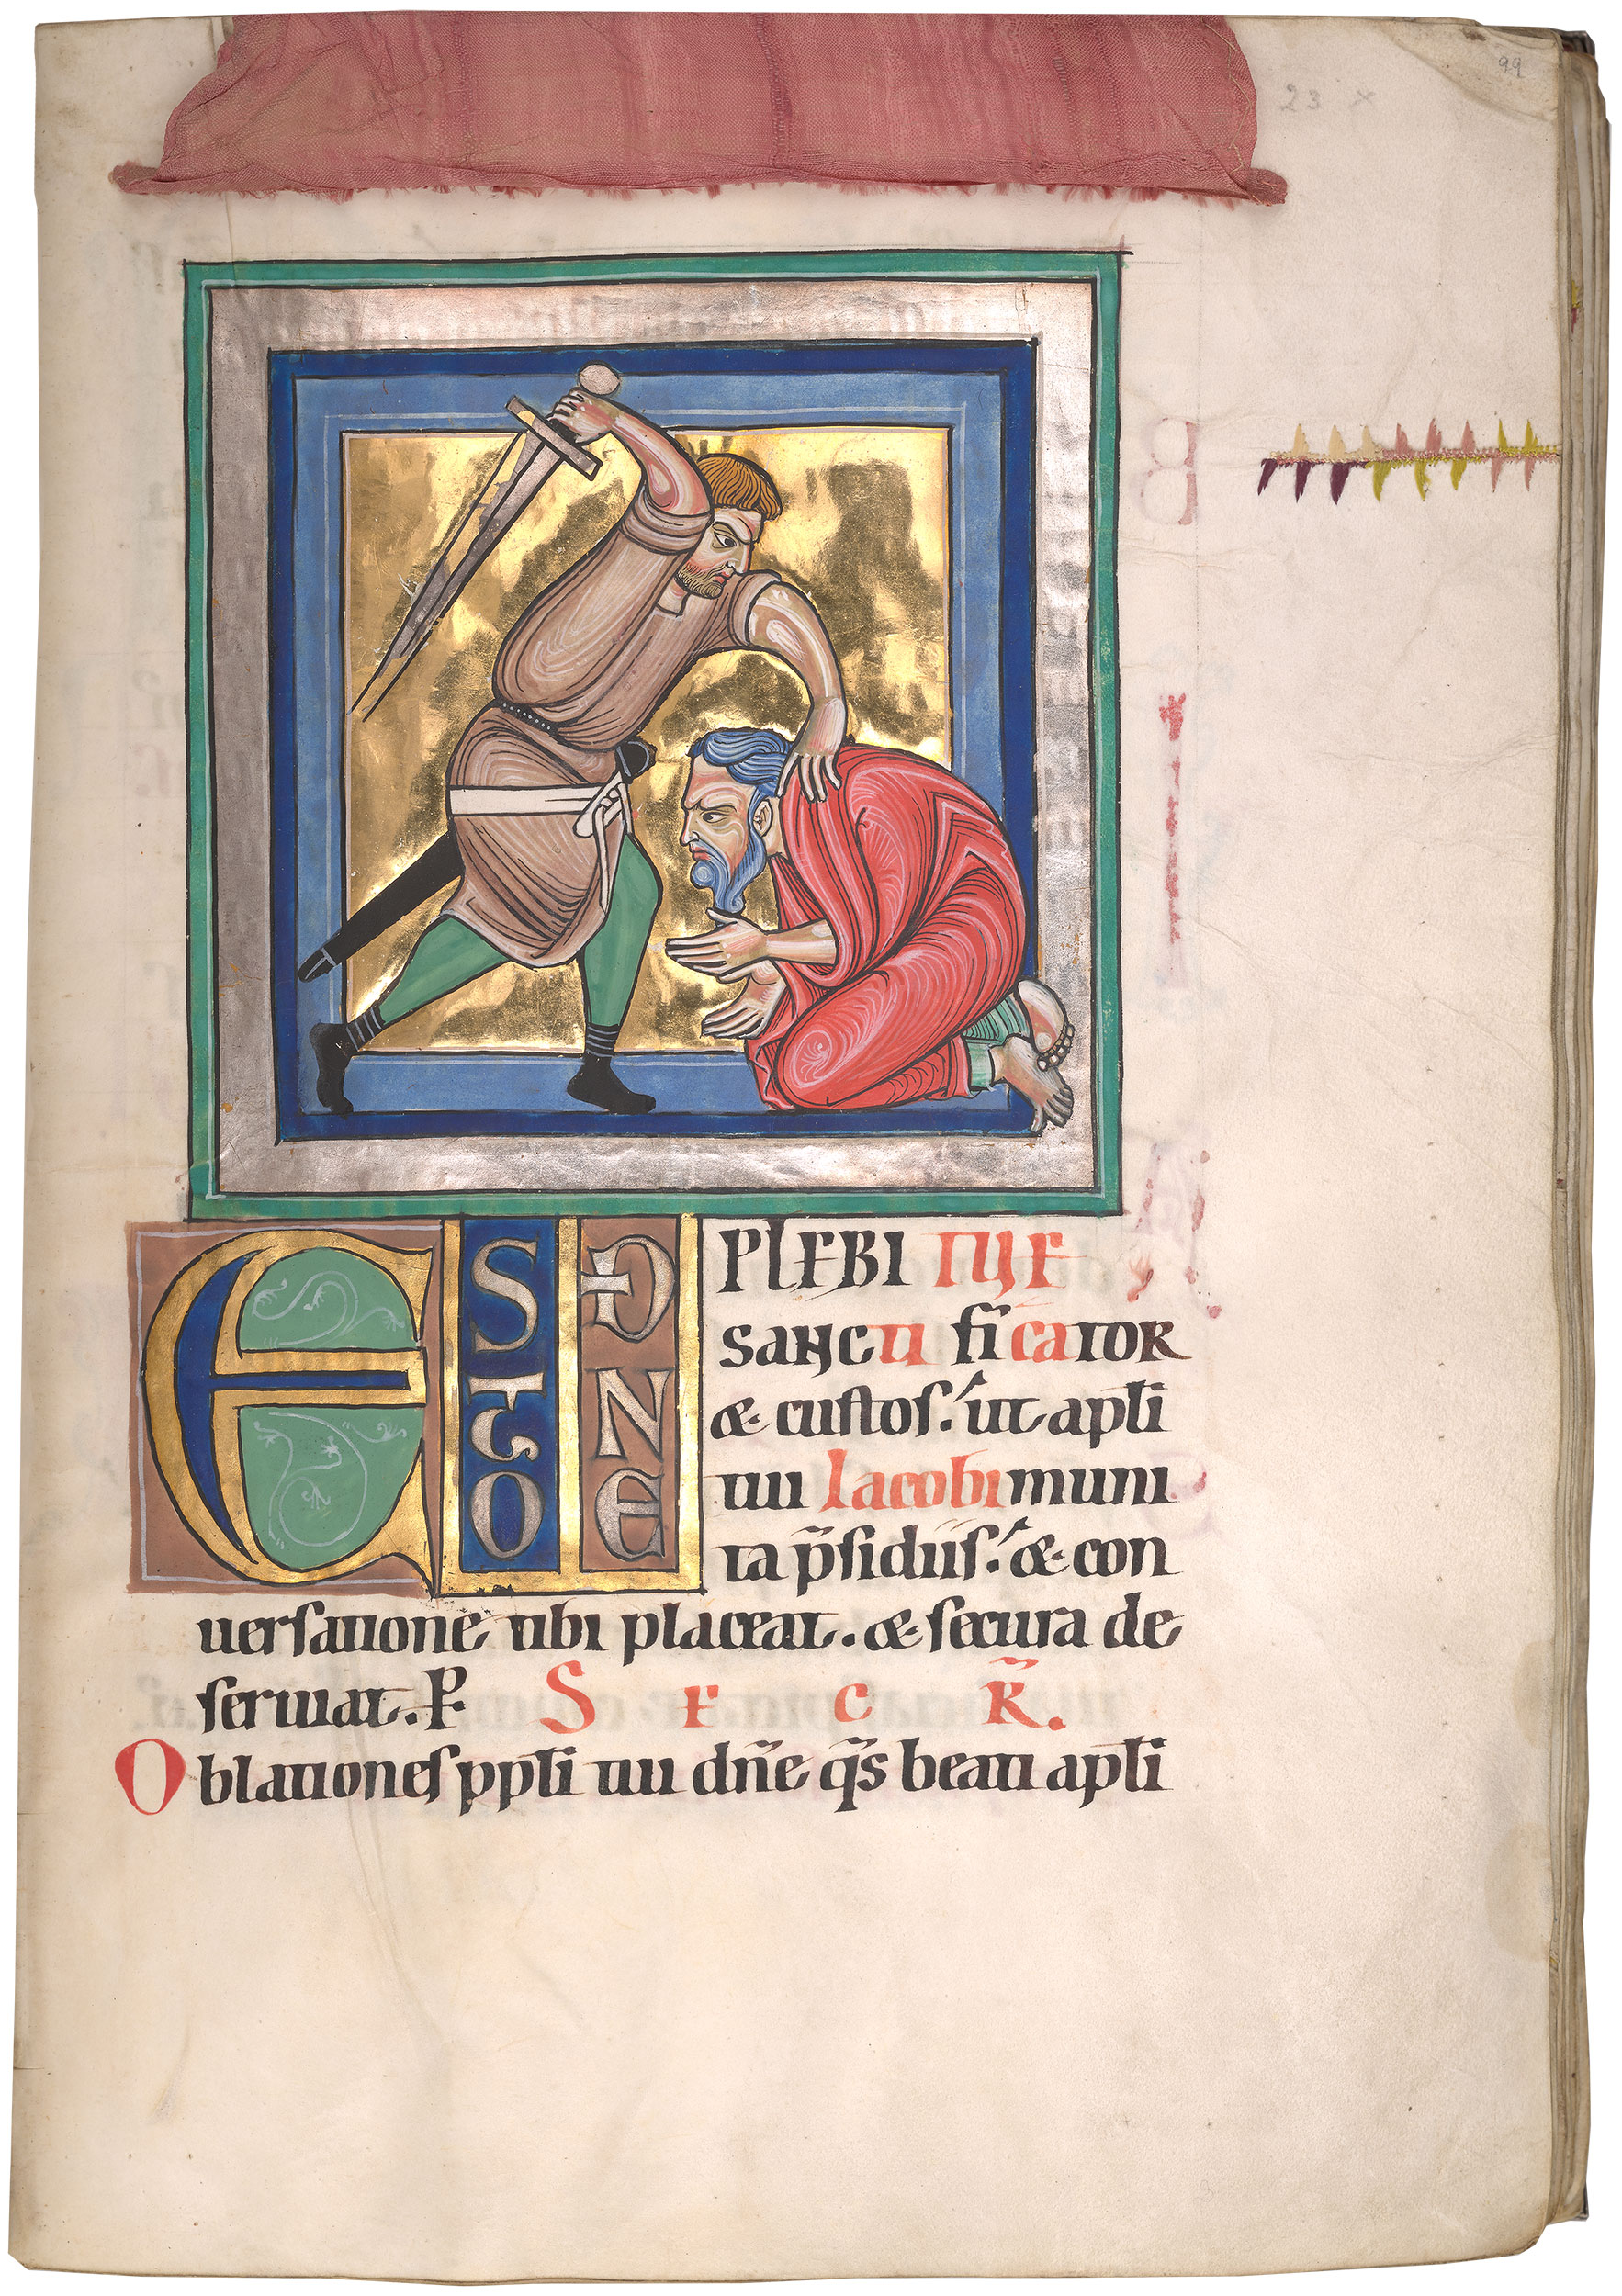 99
23 x
ESTO DNE PLEBI TUE
SANCTI ficaTOR
& custos. ut apli
tui Iacobi muni
ta p̄sidiis. & con
uersatione tibi placeat. & secura de
seruiat. P. S F C R̄.
Oblationes ppli tui dn̄e q̄s beati apli